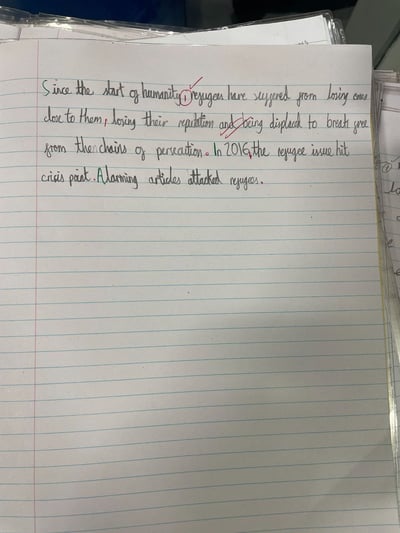 Since the start of humanity, refugees have suffered from losing ones
close to them, losing their reputation and being displaced to break free
from the chains of persecution. In 2016, the refugee issue hit
crisis point. Alarming articles attacked refugees.